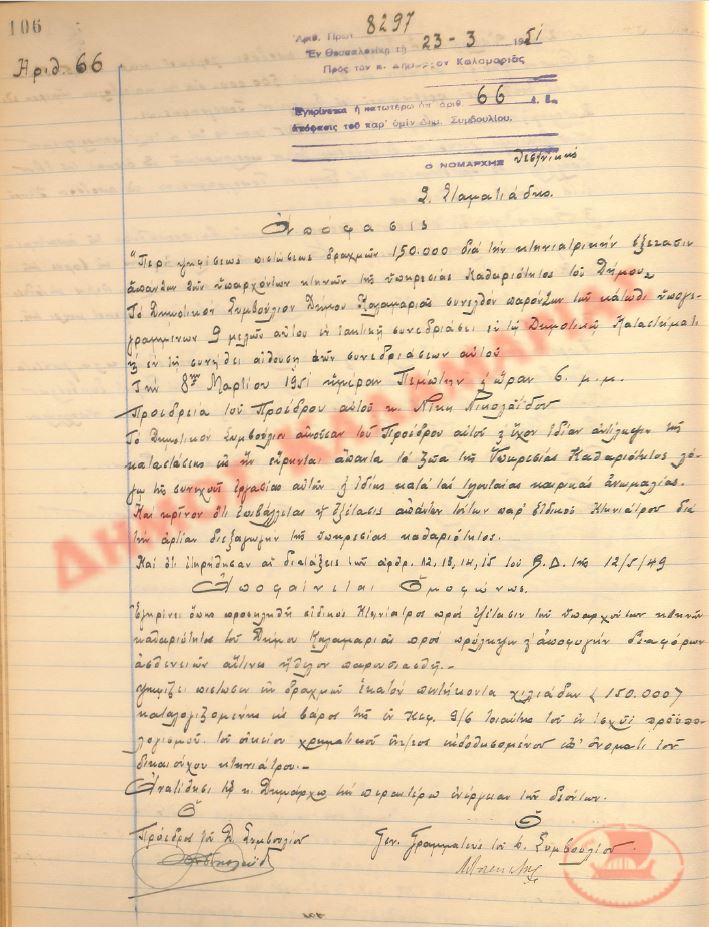 106
Αριθ 66
Αριθ. Πρωτ 8297
Εν Θεσσαλονίκη τη 23-3 1951
Πρός τον κ. Δήμαρχον Καλαμαριάς
Εγκρίνεται ή κατωτέρω υπ' αριθ. 66
απόφασις του παρ' υμίν Δημ. Συμβουλίου.
Ο ΝΟΜΑΡΧΗΣ Θεσ/νίκης
Σ. Σταματιάδης.
Απόφασις
"Περί ψηφίσεως πιστώσεως δραχμών 150.000 διά την κτηνιατρικήν εξέτασιν
απάντων των υπαρχόντων κτηνών της υπηρεσίας Καθαριότητος του Δήμου"
Τό Δημοτικόν Συμβούλιον Δήμου Καλαμαριάς συνελθόν παρόντων των κάτωθι υπογε-
γραμμένων 9 μελών αυτού εν τακτική συνεδριάσει εν τω Δημοτικώ Καταστήματι
ϗ εν τη συνήθει αιθούση των συνεδριάσεων αυτού
Την 8ην Μαρτίου 1951 ημέραν Πέμπτην ϗ ώραν 6 μ.μ.
Προεδρεία του Προέδρου αυτού κ. Νίκη Νικολαΐδου
Τό Δημοτικόν Συμβούλιον ακούσαν του Προέδρου αυτού ϗ έχον ιδίαν αντίληψιν της
καταστάσεως εις ην ευρηνται άπαντα τά ζώα της Υπηρεσίας Καθαριότητος λό-
γω της συνεχούς εργασίας αυτών ϗ ιδίως κατά τάς τελευταίας καιρικάς ανωμαλίας.
Καί κρίνον ότι επιβάλλεται η εξέτασις απάντων τούτων παρ' ειδικού Κτηνιάτρου διά
την αρτίαν διεξαγωγήν της υπηρεσίας καθαριότητος.
Καί ότι ετηρήθησαν αι διατάξεις των άρθρ. 12, 13, 14, 15 του Β.Δ. της 12/5/49
Αποφαίνεται Ομοφώνως.
Εγκρίνει όπως προσληφθή ειδικός Κτηνίατρος προς εξέτασιν των υπαρχόντων κτηνών
καθαριότητος του Δήμου Καλαμαριάς προς πρόληψιν ϗ αποφυγήν διαφόρων
ασθενειών αίτινες ήθελον παρουσιασθή.-
Ψηφίζει πίστωσιν εκ δραχμών Εκατόν πεντήκοντα χιλιάδων (150.000)
καταλογιζομένης εις βάρος της εν Κεφ. 9/6 τοιαύτης του εν ισχύϊ προϋπο-
λογισμού του οικείου χρηματικού εντ/τος εκδοθησομένου επ' ονόματι του
δικαιούχου κτηνιάτρου.-
Ανατίθησι τω κ. Δημάρχω την περαιτέρω ενέργειαν των δεόντων.
Ο Ο
Πρόεδρος του Δ. Συμβουλίου Γεν. Γραμματεύς του Δ. Συμβουλίου.
ΔΗΜΟΣ ΚΑΛΑΜΑΡΙΑΣ